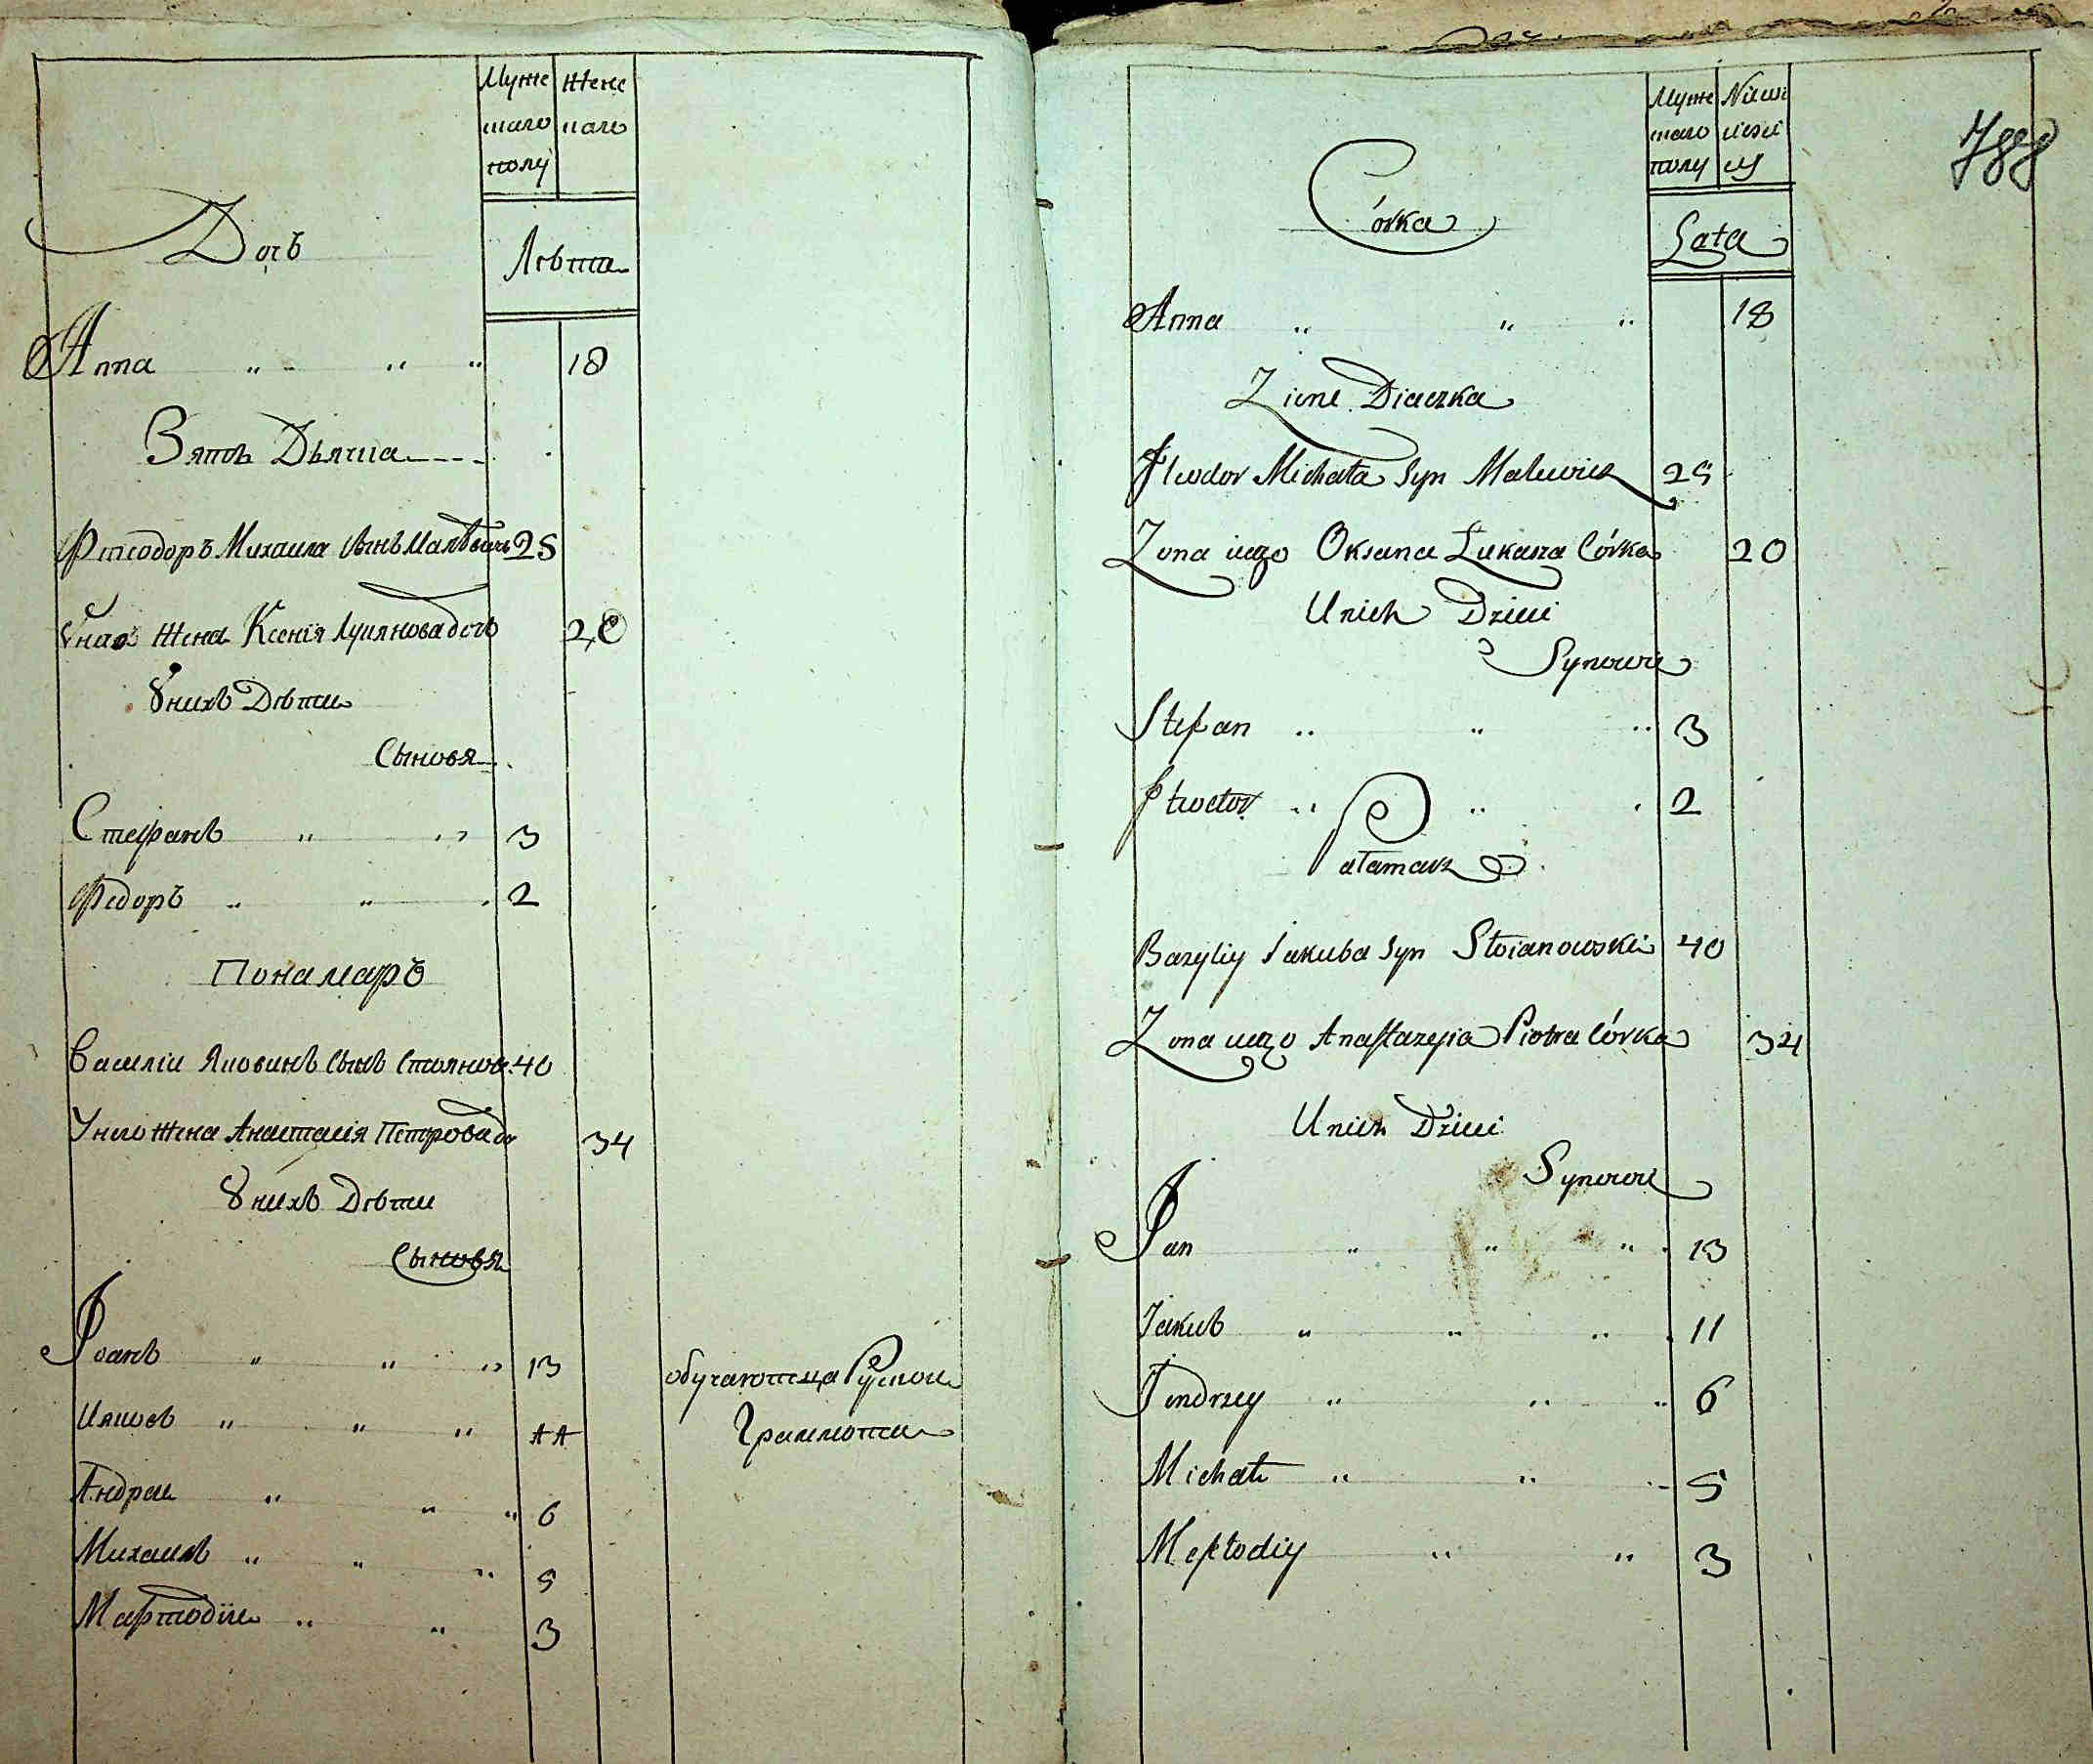 Муже Женс
скаго каго
полу
Дочь
Лѣта
Anna " " " 18
Зять Дьячка
Фтеодоръ Михаила Сынъ Малѣвичъ 25
Жена Ксенія Лукянова дочь 20
Ꙋнихъ Дѣти
Сыновя
Стефанъ " " 3
Федоръ " " 2
Понамаръ
Василіи Яковинъ Сынъ Стоянов 40
Унего Жена Анастасія Петрова до 34
Ꙋнихъ Дѣти
Сыновя
Іоанъ " " " 13
Иякоеъ " " " 11
обучаютца Руской
Грамоти
Андреи " " " 6
Михаилъ " " " 5
Мефтодіи " " 3
788
Муже Niewi
скаго
полу
Córka
Lata
Anna " " " 18
Zienc Diaczka
Fteodor Michała Syn Malewicz 25
Zona iego Oksana Łukasza Córka 20
Unich Dzieci
Synowie
Stefan " " " 3
Fteodor " " " 2
Pałamarz
Bazyliy Iakuba Syn Stoianowski 40
Zona iego Anastazyia Piotra Córka 34
Unich Dzieci
Synowie
Ian " " " 13
Iakub " " " 11
Iendrzey " " " 6
Michał " " 5
Meftodiy " " 3